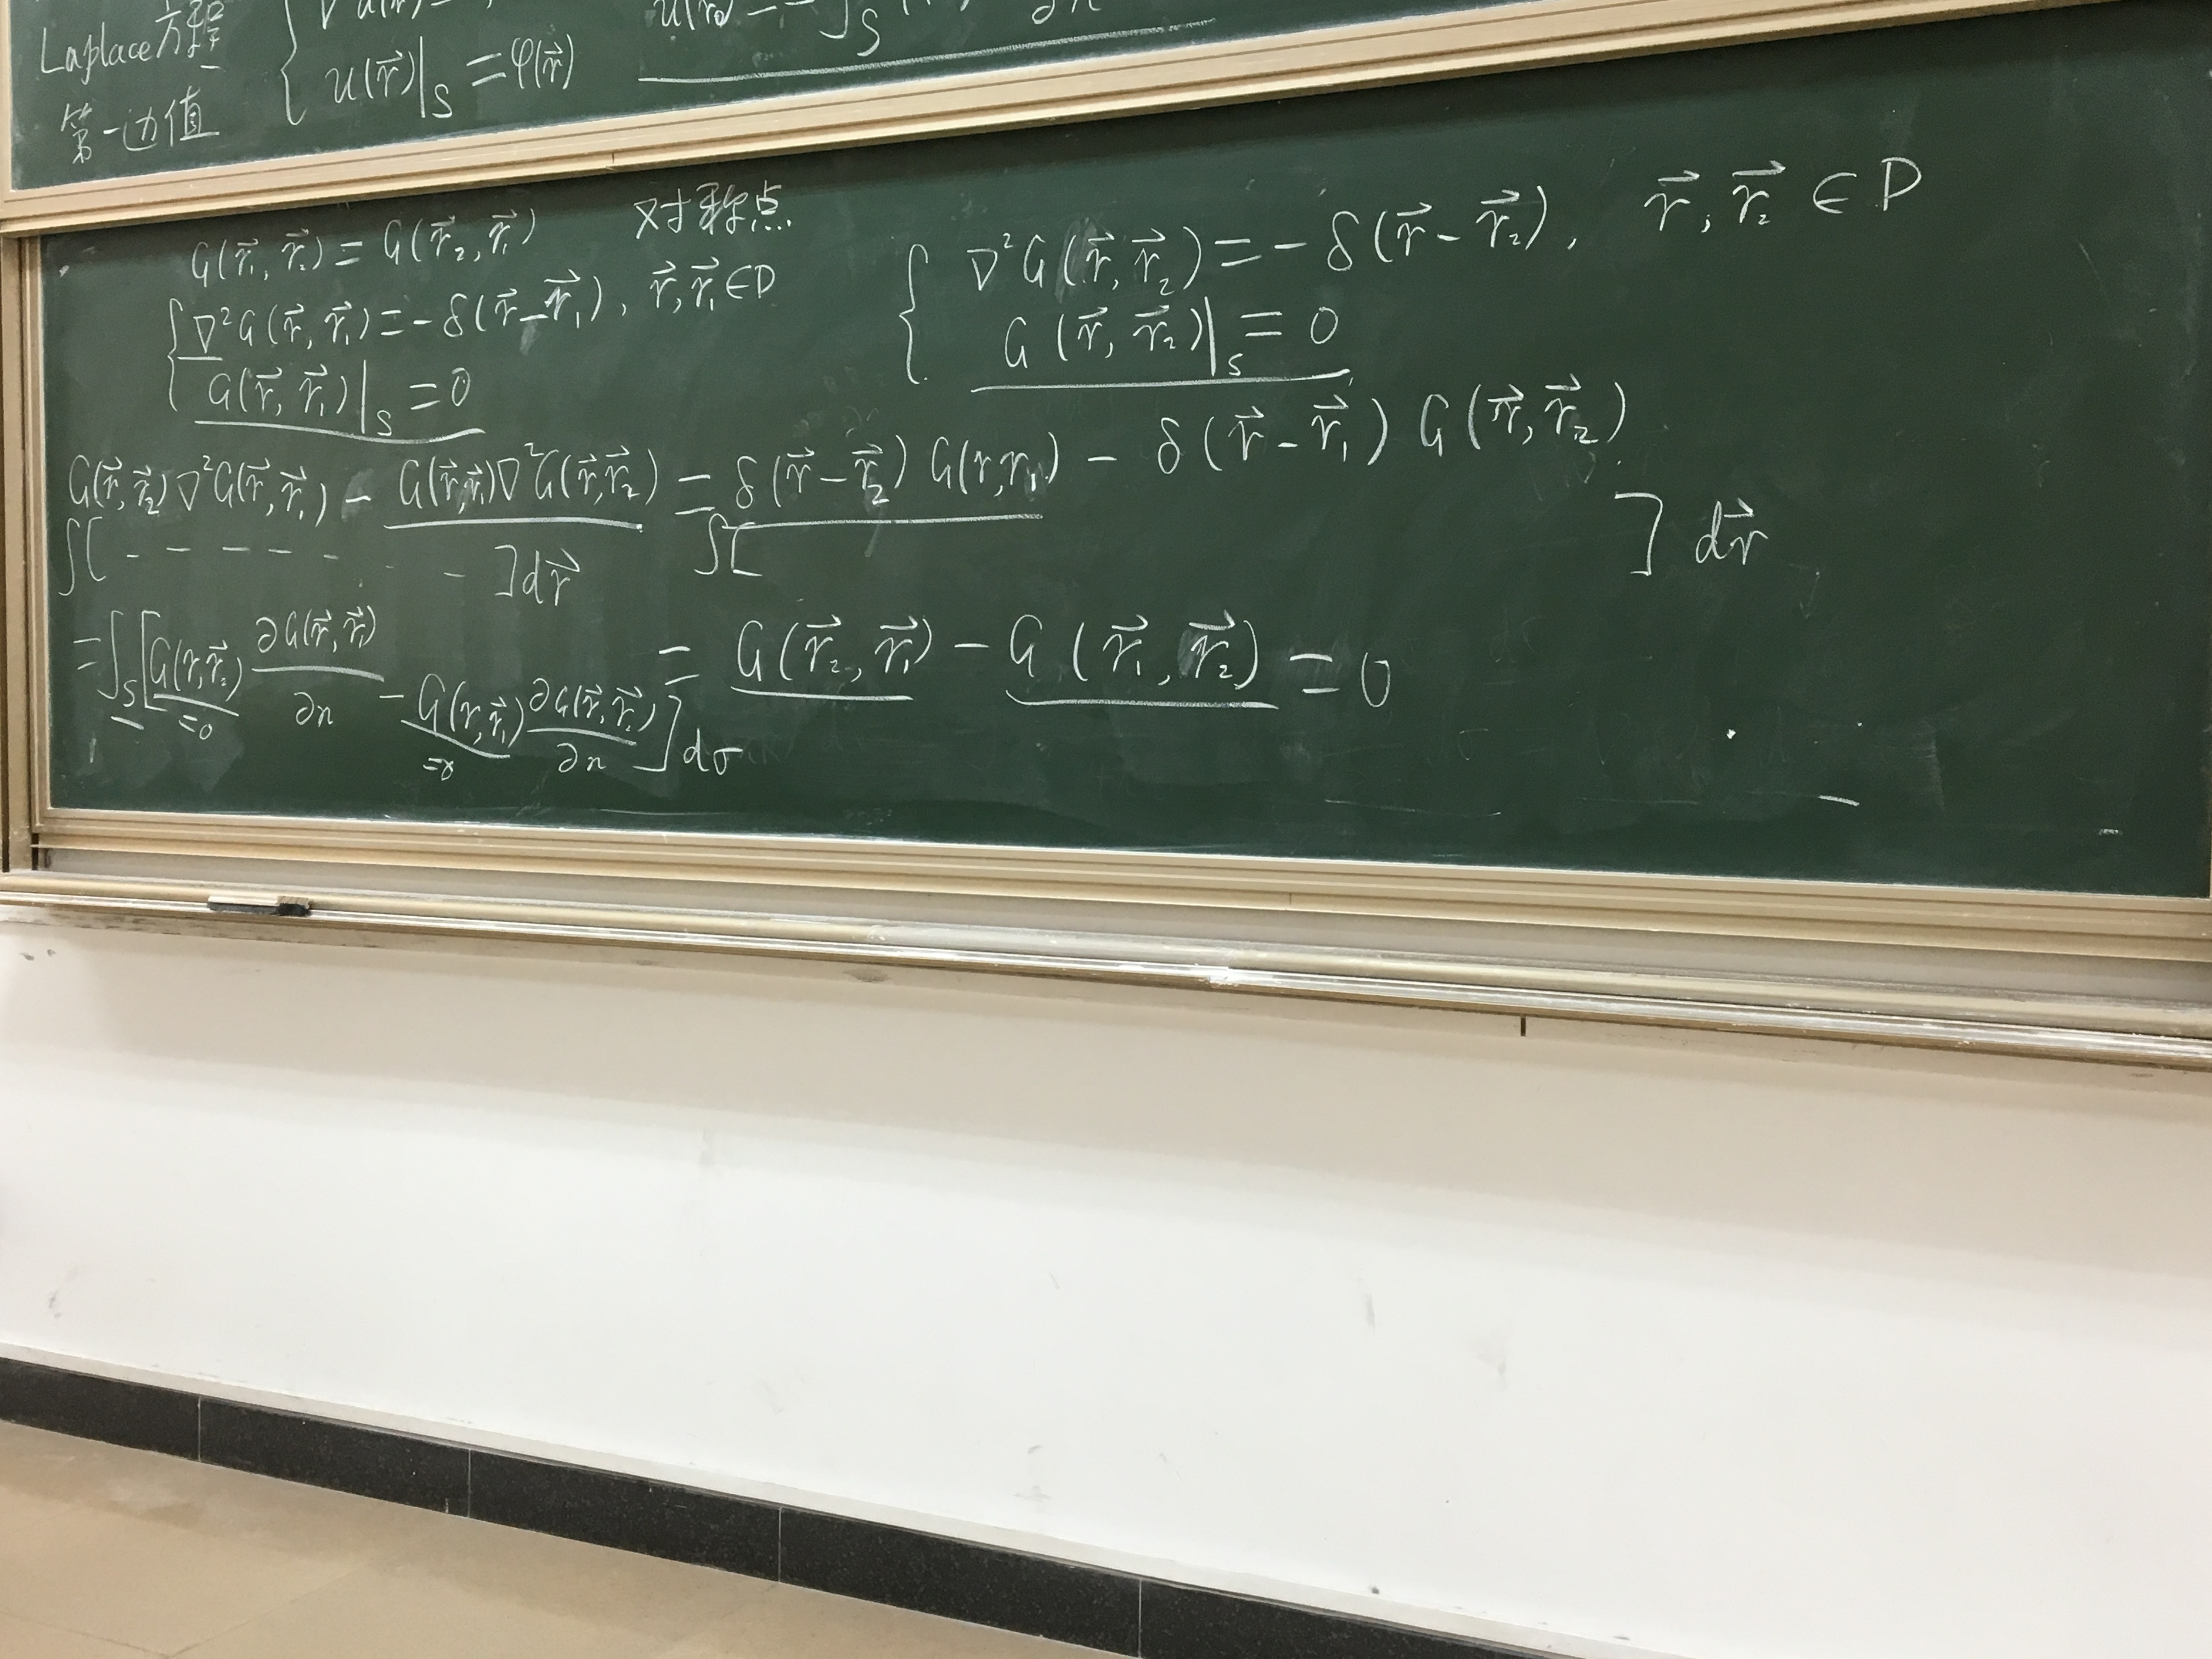 Laplace方程
第一边值
u(r⃗)|_S = φ(r⃗)
G(r⃗₁, r⃗₂) = G(r⃗₂, r⃗₁) 对称点
∇²G(r⃗, r⃗₁) = -δ(r⃗ - r⃗₁), r⃗, r⃗₁ ∈ D
G(r⃗, r⃗₁)|_S = 0
∇²G(r⃗, r⃗₂) = -δ(r⃗ - r⃗₂), r⃗, r⃗₂ ∈ D
G(r⃗, r⃗₂)|_S = 0
G(r⃗, r⃗₂)∇²G(r⃗, r⃗₁) - G(r⃗, r⃗₁)∇²G(r⃗, r⃗₂) = δ(r⃗ - r⃗₂) G(r, r₁) - δ(r⃗ - r⃗₁) G(r⃗, r⃗₂)
∫[ - - - - - - - ]dr⃗ ∫[ ] dr⃗
= ∫_S [G(r, r⃗₂) ∂G(r⃗, r⃗₁)/∂n - G(r, r⃗₁) ∂G(r⃗, r⃗₂)/∂n] dσ = G(r⃗₂, r⃗₁) - G(r⃗₁, r⃗₂) = 0
=0 =0